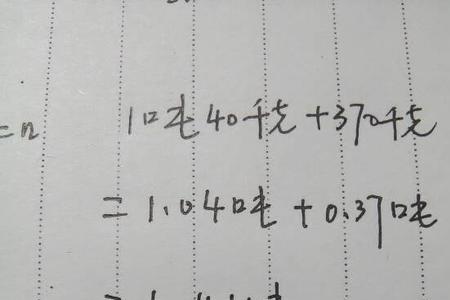 1吨40千克+370千克
=1.04吨+0.37吨